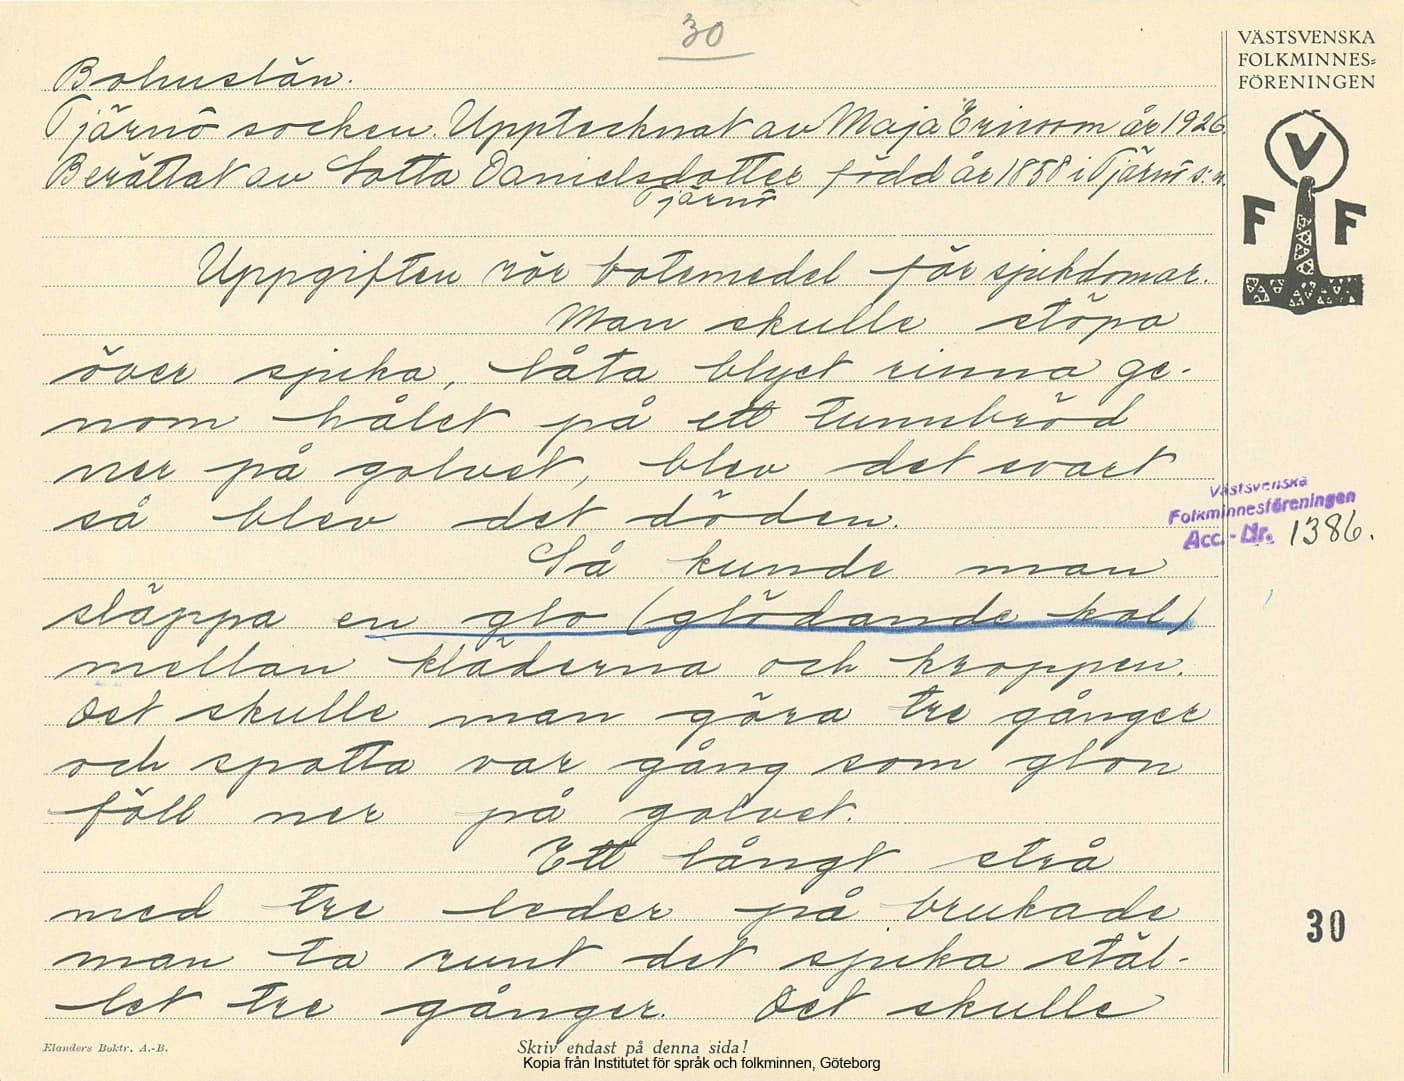 30
VÄSTSVENSKA
FOLKMINNES=
FÖRENINGEN
V
F F
Bohuslän.
Tjärnö socken. Upptecknat av Maja Ericson år 1926
Berättat av Lotta Danielsdotter född år 1858 i Tjärnö s:n.
Tjärnö
Uppgiften rör botemedel för sjukdomar.
Man skulle stöpa
över sjuka, låta blyet rinna ge-
nom hålet på ett tunnbröd
ner på golvet, blev det svart
så blev det döden.
Västsvenska
Folkminnesföreningen
Acc.-Nr. 1386.
Så kunde man
släppa en glo (glödande kol)
mellan kläderna och kroppen.
Det skulle man göra tre gånger
och spotta var gång som glon
föll ner på golvet.
Ett långt strå
med tre leder på brukade
man ta runt det sjuka stäl-
let tre gånger. Det skulle
30
Elanders Boktr. A.-B.
Skriv endast på denna sida!
Kopia från Institutet för språk och folkminnen, Göteborg